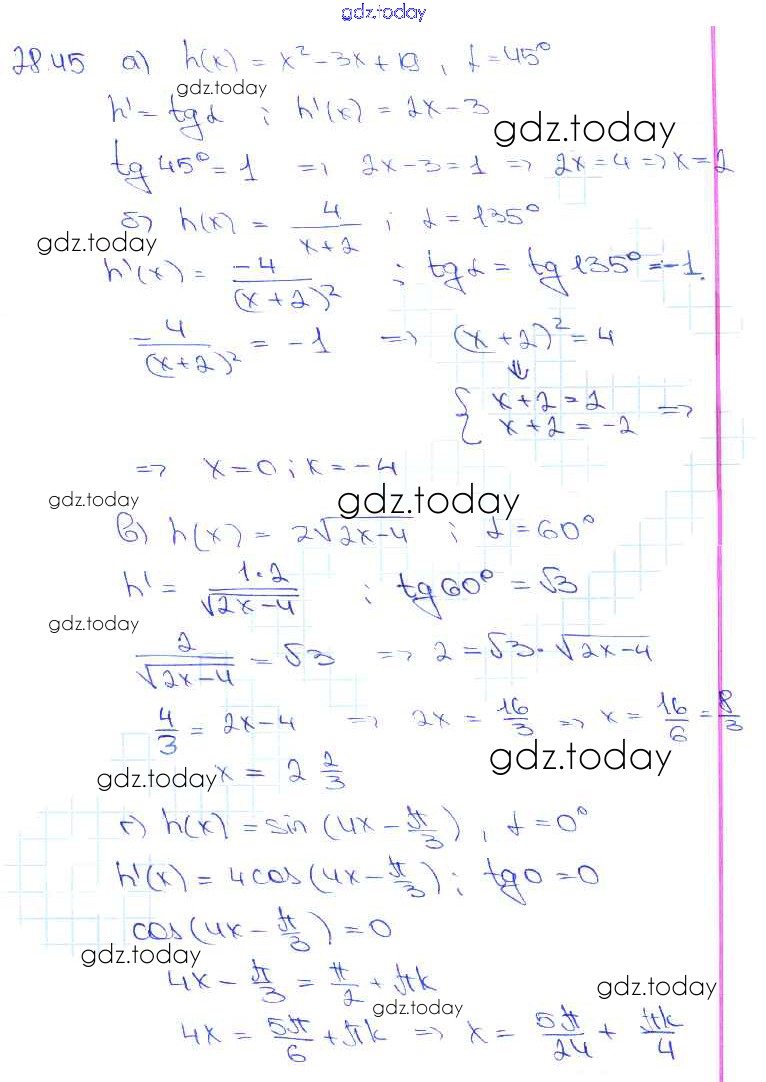 gdz.today
28.45 а) h(x) = x² - 3x + 19 , α = 45°
gdz.today
h' = tg α ; h'(x) = 2x - 3
gdz.today
tg 45° = 1 => 2x - 3 = 1 => 2x = 4 => x = 2
б) h(x) = 4/(x+2) ; α = 135°
gdz.today
h'(x) = -4/(x+2)² ; tg α = tg 135° = -1.
-4/(x+2)² = -1 => (x+2)² = 4
⇓
{ x+2 = 2
x+2 = -2 =>
=> x = 0 ; x = -4
gdz.today gdz.today
в) h(x) = 2√(2x-4) ; α = 60°
h' = 1·2/√(2x-4) ; tg 60° = √3
gdz.today
2/√(2x-4) = √3 => 2 = √3 · √(2x-4)
4/3 = 2x - 4 => 2x = 16/3 => x = 16/6 = 8/3
gdz.today x = 2 2/3 gdz.today
г) h(x) = sin (4x - π/3) , α = 0°
h'(x) = 4cos(4x - π/3) ; tg 0 = 0
cos(4x - π/3) = 0
gdz.today
4x - π/3 = π/2 + πk
gdz.today gdz.today
4x = 5π/6 + πk => x = 5π/24 + πk/4